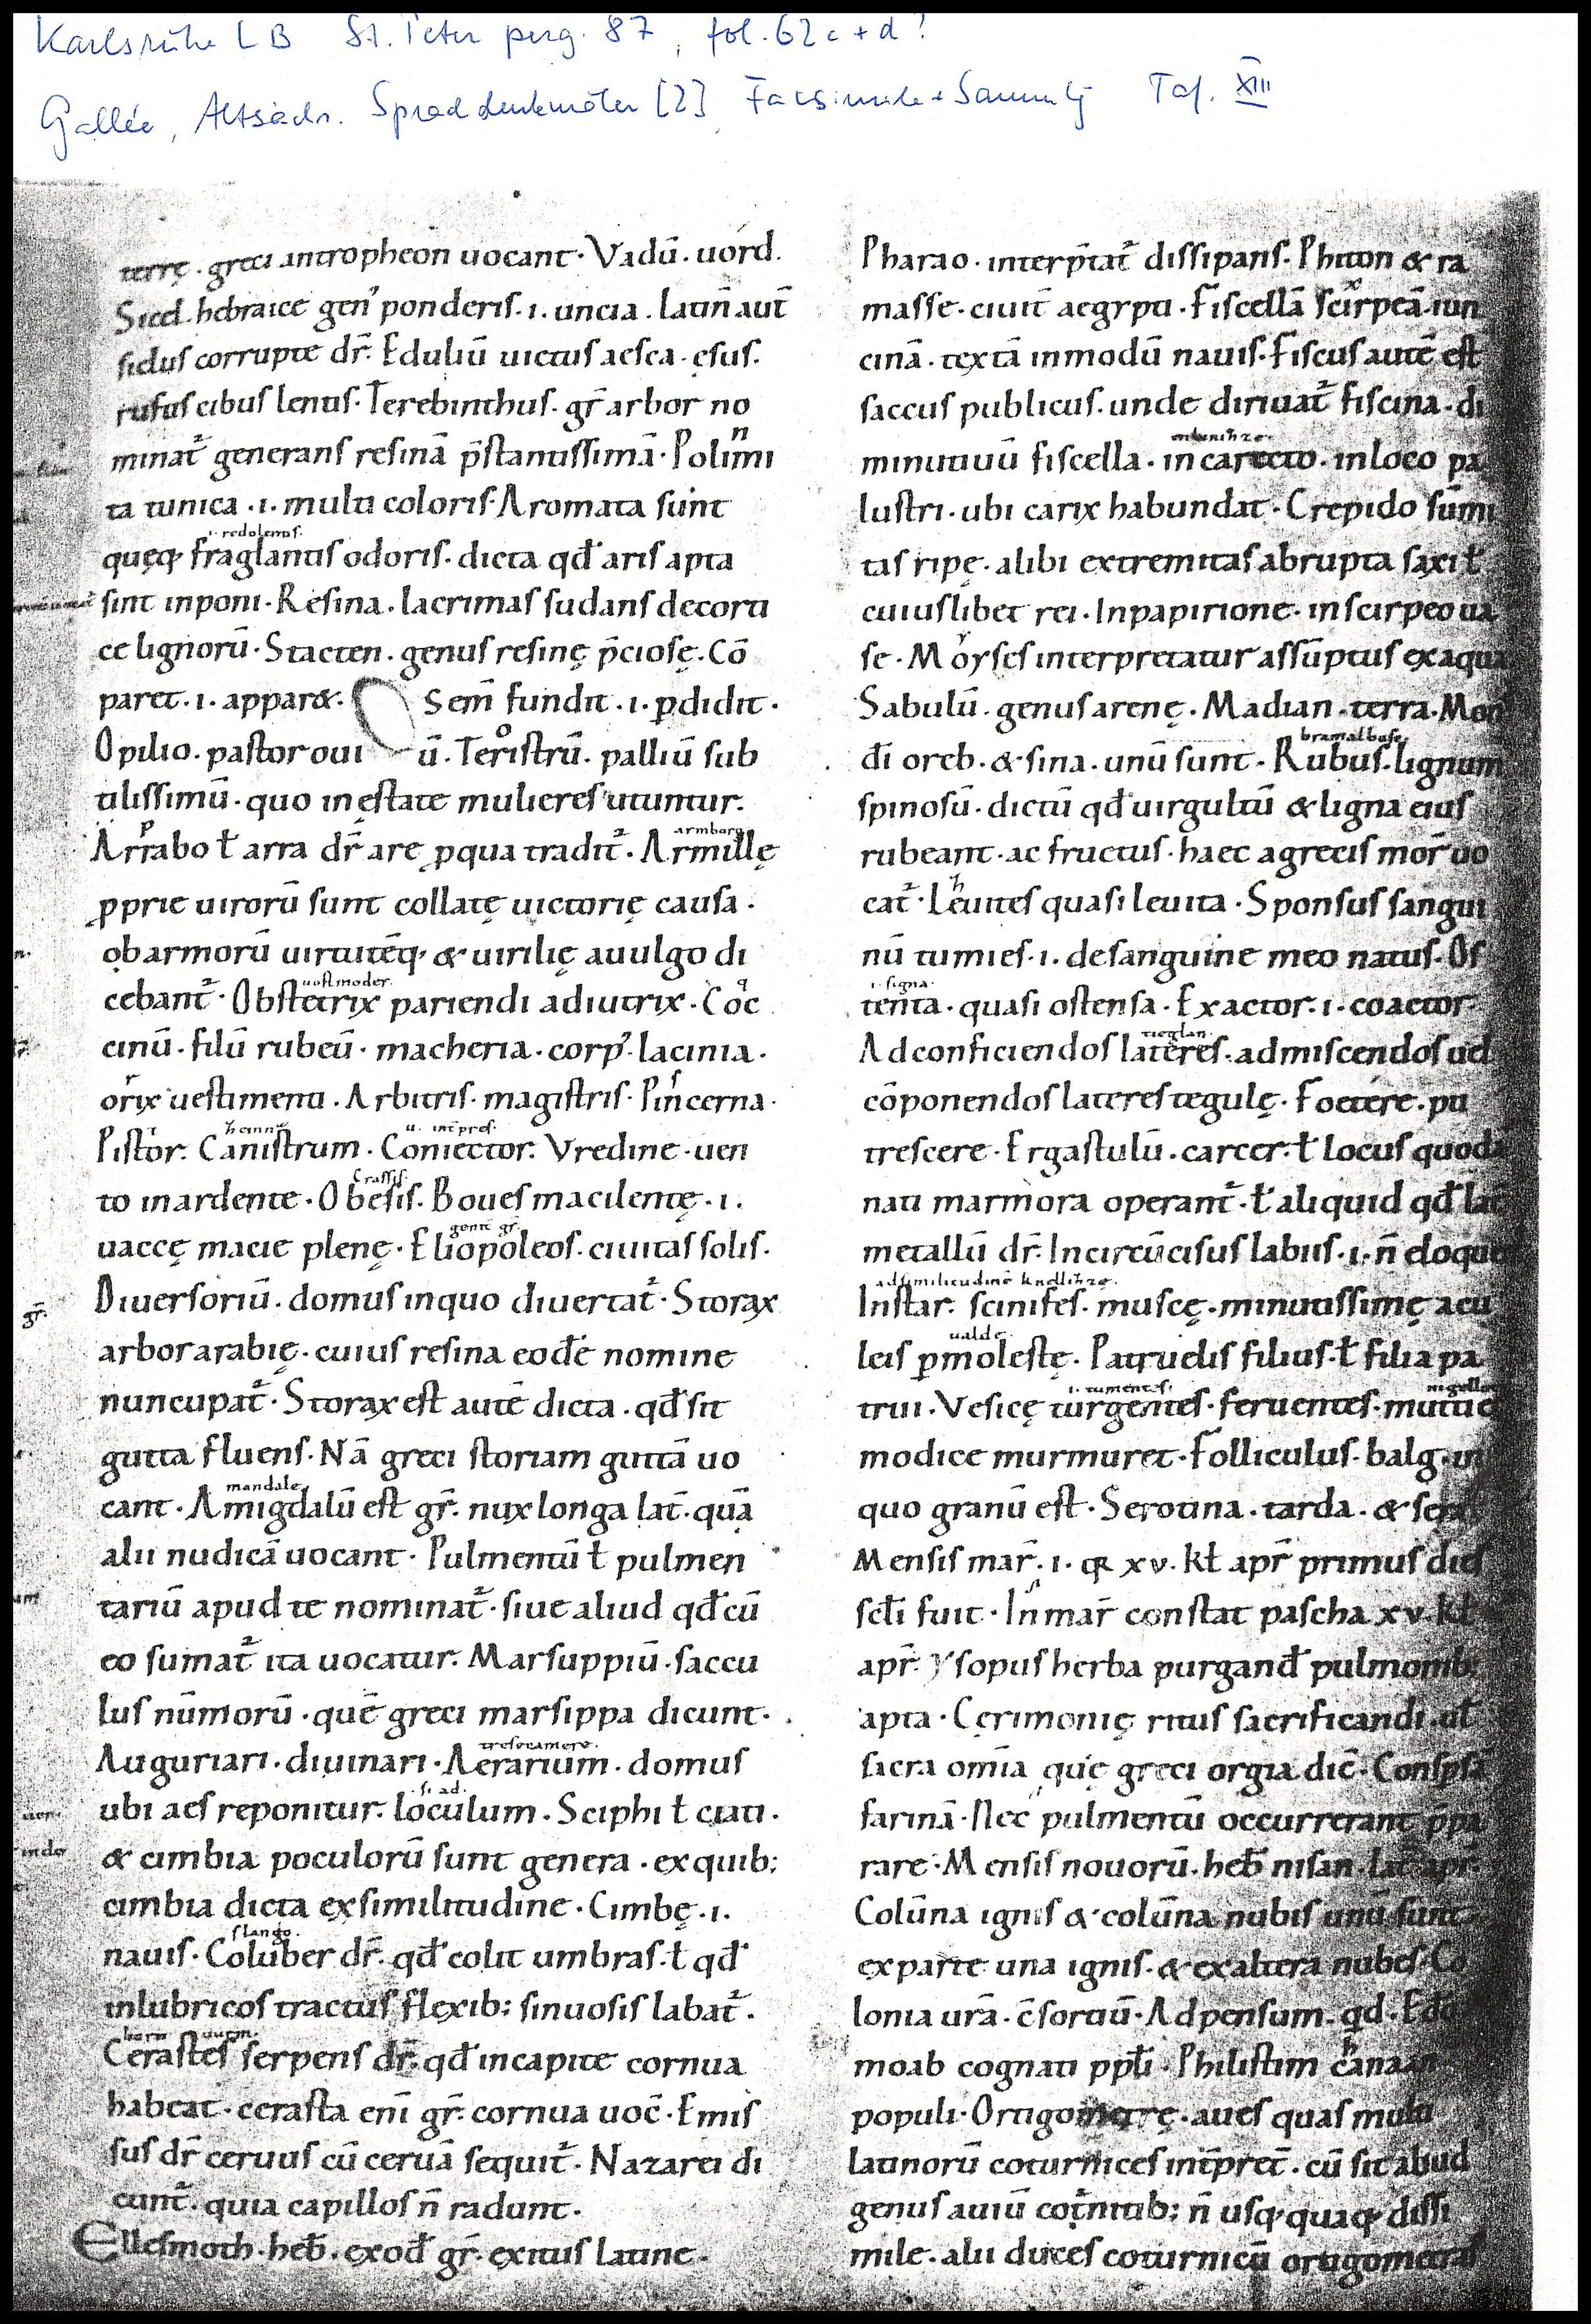 Karlsruhe LB St. Peter perg. 87, fol. 62 c + d!
Gallée, Altsächs. Sprachdenkmäler [2] Facsimile-Sammlg Taf. XIII
terrę · greci antropheon uocant · Vadū · uord.
Sicel · hebraice gen᾽ ponderis · i · uncia · latin̄ aut̄
siclus corrupte dr̄ · Eduliū uictus aesca · ęsus.
rufus cibus lentis · Terebinthus · gr̄ arbor no
minat᷑ generans resinā p̄stantissimā · Polimi
ta tunica · i · multi coloris · Aromata sunt
i · redolentis ·
quęq; fraglantis odoris · dicta qđ aris apta
sint inponi · Resina · lacrimas sudans de corti
ce lignorū · Stacten · genus resinę p̄ciosę · Cō
paret · i · apparet · Semn̄ fundit · i · ꝑdidit ·
Opilio · pastor oui ū · Teristrū · palliū sub
tilissimū · quo in estate mulieres utuntur.
armborg
Arrabo ł arra dr̄ a re ꝑ qua tradit᷑ · Armillę
ꝓprie uirorū sunt collatę uictorię causa ·
ob armorū uirtutēq; & uirilię a uulgo di
uostmoder.
cebant᷑ · Obstetrix pariendi adiutrix · Coc
cinū · filū rubeū · macheria · corp᾽ · lacinia ·
orix uestimenti · Arbitris · magistris · Pincerna ·
u. int̄pres.
Pistor. Canistrum · Coniector. Vredine · uen
crassis
to in ardente · Obesis. Boues macilentę · i ·
uaccę macie plenę · Eliopoleos · ciuitas solis ·
Diuersoriū · domus in quo diuertat᷑ · Storax
arbor arabię · cuius resina eodē nomine
nuncupat᷑ · Storax est autē dicta · qđ sit
gutta fluens · Nā greci storiam guttā uo
mandale
cant · Amigdalū est gr̄ · nux longa lat̄ · quā
alii nudicā uocant · Pulmentū ł pulmen
tariū apud te nominat᷑ · siue aliud qđ cū
eo sumat᷑ ita uocatur. Marsuppiū · saccu
lus nūmorū · quē greci marsippa dicunt ·
tresecamere.
Auguriari · diuinari · Aerarium · domus
ubi aes reponitur. loculum · Sciphi ł ciati ·
& cimbia poculorū sunt genera · ex quib;
cimbia dicta ex similitudine · Cimbę · i ·
slango
nauis · Coluber dr̄ · qđ colit umbras · ł qđ
in lubricos tractus flexib; sinuosis labat᷑ ·
Cerastes serpens dr̄ · qđ in capite cornua
habeat · cerasta eni gr̄ · cornua uoc̄ · Emis
sus dr̄ ceruus cū ceruā sequit᷑ · Nazarei di
cunt᷑ · quia capillos n̄ radunt ·
Ellesmoth · heb̄ · exod̄ gr̄ · exitus latine ·
Pharao · interp̄tat᷑ dissipans · Phiton & ra
masse · ciuit̄ aegypti · Fiscellā scirpeā · iun
cinā · textā in modū nauis · Fiscus autē est
saccus publicus · unde diriuat᷑ fiscina · di
minutiuū fiscella · in carecto · in loco pa
lustri · ubi carix habundat · Crepido sūmi
tas ripę · alibi extremitas abrupta saxi ł
cuiuslibet rei · In papirione · in scirpeo ua
se · Moyses interpretatur assūptus ex aqua
Sabulū · genus arenę · Madian · terra · Mon
bramalbuse
di oreb · & sina · unū sunt · Rubus · lignum
spinosū · dictū qđ uirgultū & ligna eius
rubeant · ac fructus · haec a grecis mor̄ uo
cat᷑ · Leuites quasi leuita · Sponsus sangui
nū tu mi es · i · de sanguine meo natus · Os
i · signa ·
tenta · quasi ostensa · Exactor · i · coactor ·
tieglan.
Ad conficiendos lateres · ad miscendos uel
cōponendos lateres tegulę · Foetere · pu
trescere · Ergastulū · carcer · ł locus quo dā
nati marmora operant᷑ · ł aliquid qđ lat̄
metallū dr̄ · Incircūcisus labiis · i · n̄ eloque
ad similitudinē
Instar. scinifes · muscę · minutissimę acu
ualde
leis ꝑmolestę · Patruelis filius · ł filia pa
i · tumentes.
trui · Vesicę turgentes · feruentes · muttie
modice murmuret · Folliculus · balg · in
quo granū est · Serotina · tarda · &
Mensis mar̄ · i · xv · kł apr̄ primus dies
scłi fuit · In mar̄ constat pascha xv · kł
apr̄ · ysopus herba purgand̄ pulmonib;
apta · Cęrimonię ritus sacrificandi · uł
sacra omīa quę greci orgia dic̄ · Conspsā
farinā · Nec pulmentū occurrerant p̄pa
rare · Mensis nouorū · heb̄ nisan · lat̄ apr̄
Colūna ignis & colūna nubis unū sunt
ex parte una ignis · & ex altera nubes · Co
lonia urā · c̄sortiū · Ad pensum · qd · Edō
moab cognati ppłi · Philistim canaan
populi · Ortigometrę · aues quas multi
latinorū coturnices int̄pret̄ · cū sit aliud
genus auiū cot᷑nicib; n̄ usq; quaq; dissi
mile · alii duces coturnicū ortigometras